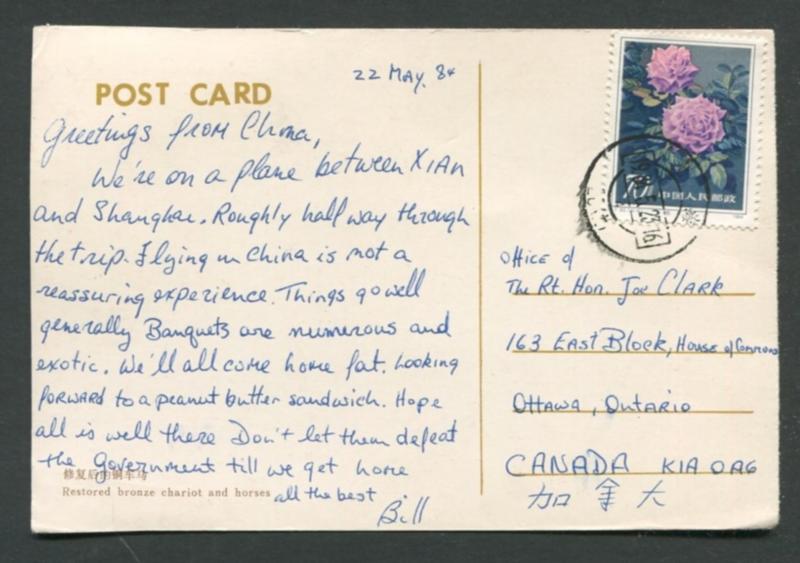 22 MAY. 84
POST CARD
Greetings from China,
We're on a plane between XIAN
and Shanghai. Roughly half way through
the trip. Flying in China is not a
reassuring experience. Things go well
generally Banquets are numerous and
exotic. We'll all come home fat. Looking
forward to a peanut butter sandwich. Hope
all is well there Don't let them defeat
the Government till we get home
修复后的铜车马
Restored bronze chariot and horses
all the best
Bill
70 中国人民邮政
Office of
The Rt. Hon. Joe Clark
163 East Block, House of Commons
Ottawa, Ontario
CANADA K1A 0A6
加拿大